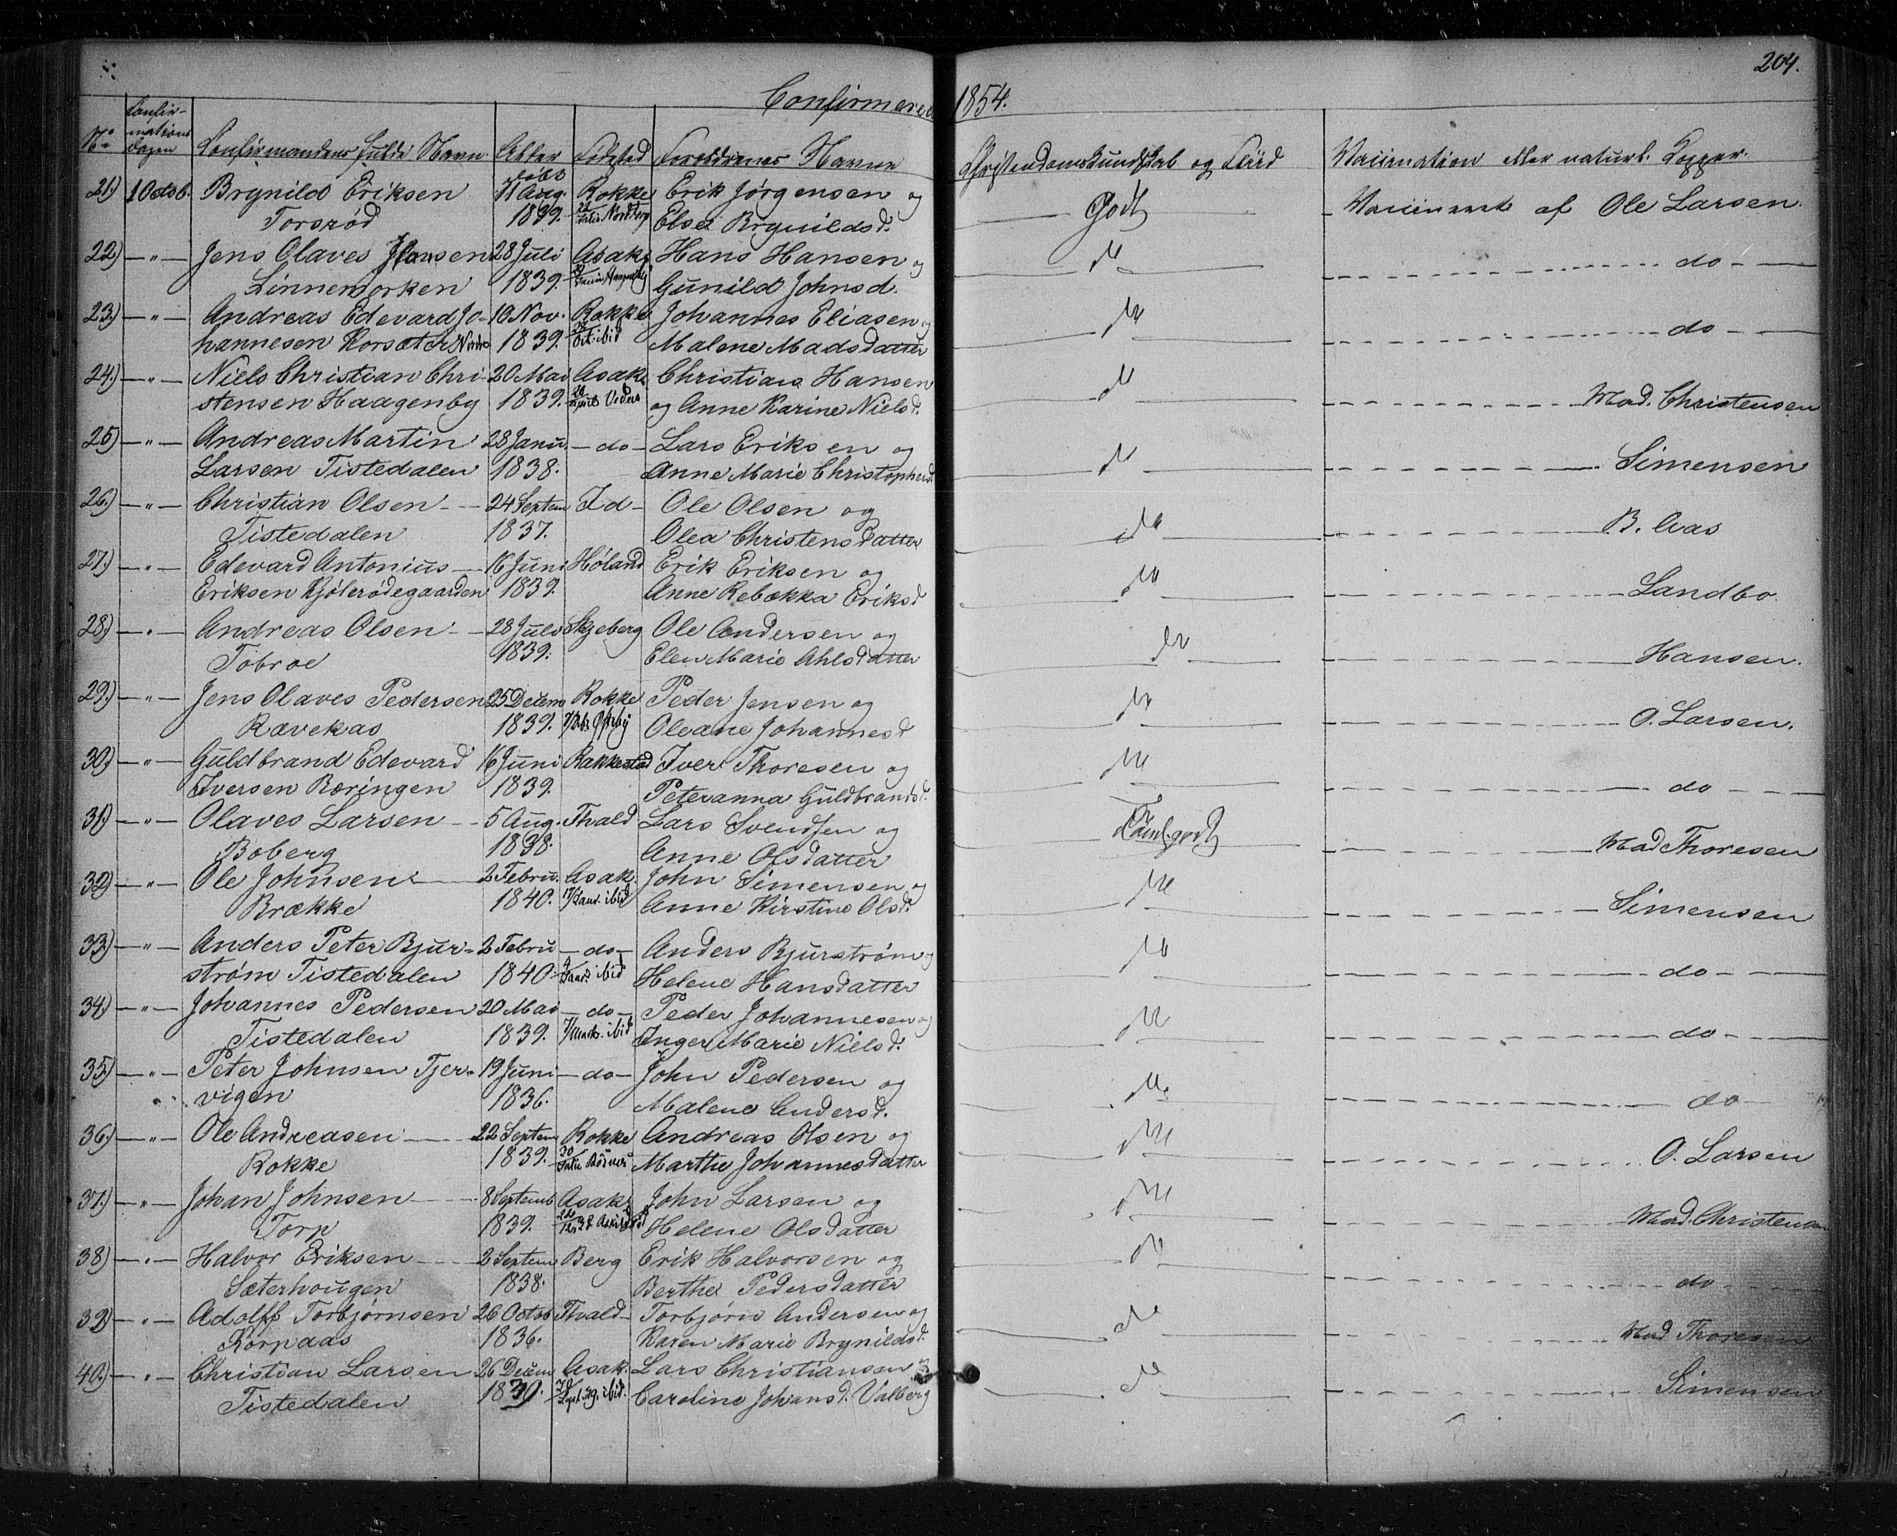 204.
Confirmerede 1854.
No Confirmations Dagen Confirmandens fulde Navn Alder Fødested Forældrenes Navne Christendomskundskab og Flid Vaccination eller naturl. Kopper.
21) 1 Octob. Brynild Eriksen 11 Aug. Rokke Erik Jørgensen og Godt Vaccineret af Ole Larsen.
Torsrød 1839. Else Brynildsd.
22) — " — Jens Olaves Hansen 28 Juli Asak Hans Hansen og do do
Linnemorken 1839. Gunild Johnsd.
23) — " — Andreas Edevard Jo- 10 Nov. Rokke Johannes Eliasen og do do
hannesen Korsæter Nordre 1839. Oct. ibid Malene Madsdatter
24) — " — Niels Christian Chri- 20 Mai Asak Christian Hansen do Mad. Christensen
stensen Haagenby 1839. og Anne Karine Nielsd.
25) — " — Andreas Martin 28 Janu. — do — Lars Eriksen og do Simensen
Larsen Tistedalen 1838. Anne Marie Christophersd
26) — " — Christian Olsen 24 Septem Id Ole Olsen og do B. Aas
Tistedalen 1837. Olea Christensdatter
27) — " — Edevard Antonius 16 Juni Høland Erik Eriksen og do Landbo.
Eriksen Kjølerødegaarden 1839. Anne Rebækka Eriksd
28) — " — Andreas Olsen 28 Juli Skjeberg Ole Andersen og do Hansen.
Tobroe 1839. Elen Marie Ahlsdatter
29) — " — Jens Olaves Pedersen 25 Decem Rokke Peder Jensen og do O. Larsen.
Rævekas 1839. Oleane Johannesd
30) — " — Guldbrand Edevard 16 Juni Rakkestad Iver Thoresen og do do
Iversen Bæringen 1839. Peteranna Guldbrandsd.
31) — " — Olaves Larsen 5 Aug. Thvald Lars Svendsen og Teml. godt Mad Thoresen
Boberg 1838. Anne Olsdatter
32) — " — Ole Johnsen 2 Febru. Asak. John Simensen og do Simensen
Brække 1840. Janr. ibid Anne Kirstine Olsd.
33) — " — Anders Peter Bjur- 2 Febru — do — Anders Bjurstrøm og do do
strøm Tistedalen 1840. Janr. ibid Helene Hansdatter
34) — " — Johannes Pedersen 20 Mai — do — Peder Johannesen og do do
Tistedalen 1839. ibid Inger Marie Nielsd.
35) — " — Peter Johnsen Tjer- 19 Juni — do — John Pedersen og do do
vigen 1836. Malene Andersd.
36) — " — Ole Andreasen 22 Septem Rokke Andreas Olsen og do O. Larsen
Rokke 1839. Marthe Johannesdatter
37) — " — Johan Johnsen 8 Septemb Asak John Larsen og do Mad. Christensen
Torp 1839. Helene Olsdatter
38) — " — Halvor Eriksen 2 Septem Berg Erik Halvorsen og do do
Sæterhougen 1838. Berthe Pedersdatter
39) — " — Adolff Torbjørnsen 26 Octob Thvald Torbjørn Andersen og do Mad Thoresen
Kornaas 1836. Karen Marie Brynildsd.
40) — " — Christian Larsen 26 Decem Asak. Lars Christiansen og do Simensen
Tistedalen 1839. Sept. 39. ibid. Caroline Johansd. Valberg